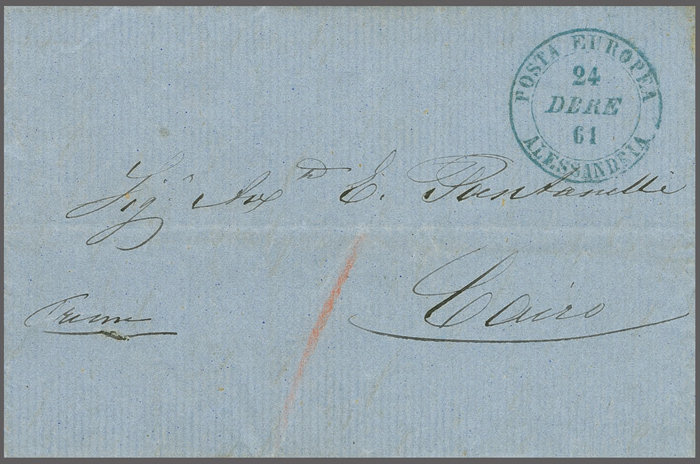 POSTA EUROPEA
24
DBRE
61
ALESSANDRIA
Sig.r E. Pantanelli
Cairo